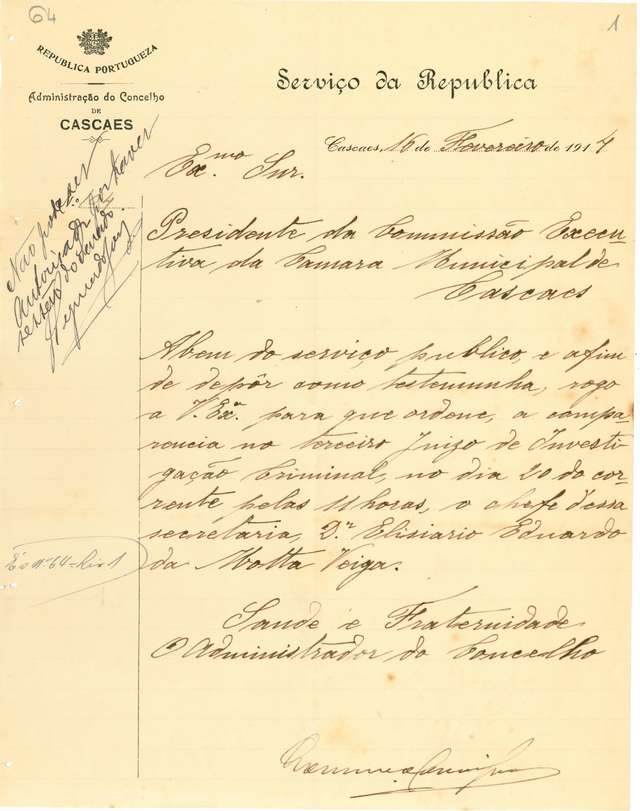 64
1
REPUBLICA PORTUGUEZA
Administração do Concelho
DE
CASCAES
Serviço da Republica
Cascaes, 16 de Fevereiro de 1914
Não pode ser
autorisado por haver
sessão do Senado
Ex.mo Snr.
Presidente da Commissão Execu-
tiva da Camara Municipal de
Cascaes
Abem do serviço publico, e afim
de depôr como testemunha, rogo
a V. Exª. para que ordene, a compa-
rencia no terceiro Juizo de Investi-
gação Criminal, no dia 20 do cor-
rente pelas 11 horas, o chefe d'essa
secretaria, Dr Elisiario Eduardo
da Motta Veiga.
É o nº 64 - Liv 1
Saude e Fraternidade
O Administrador do Concelho